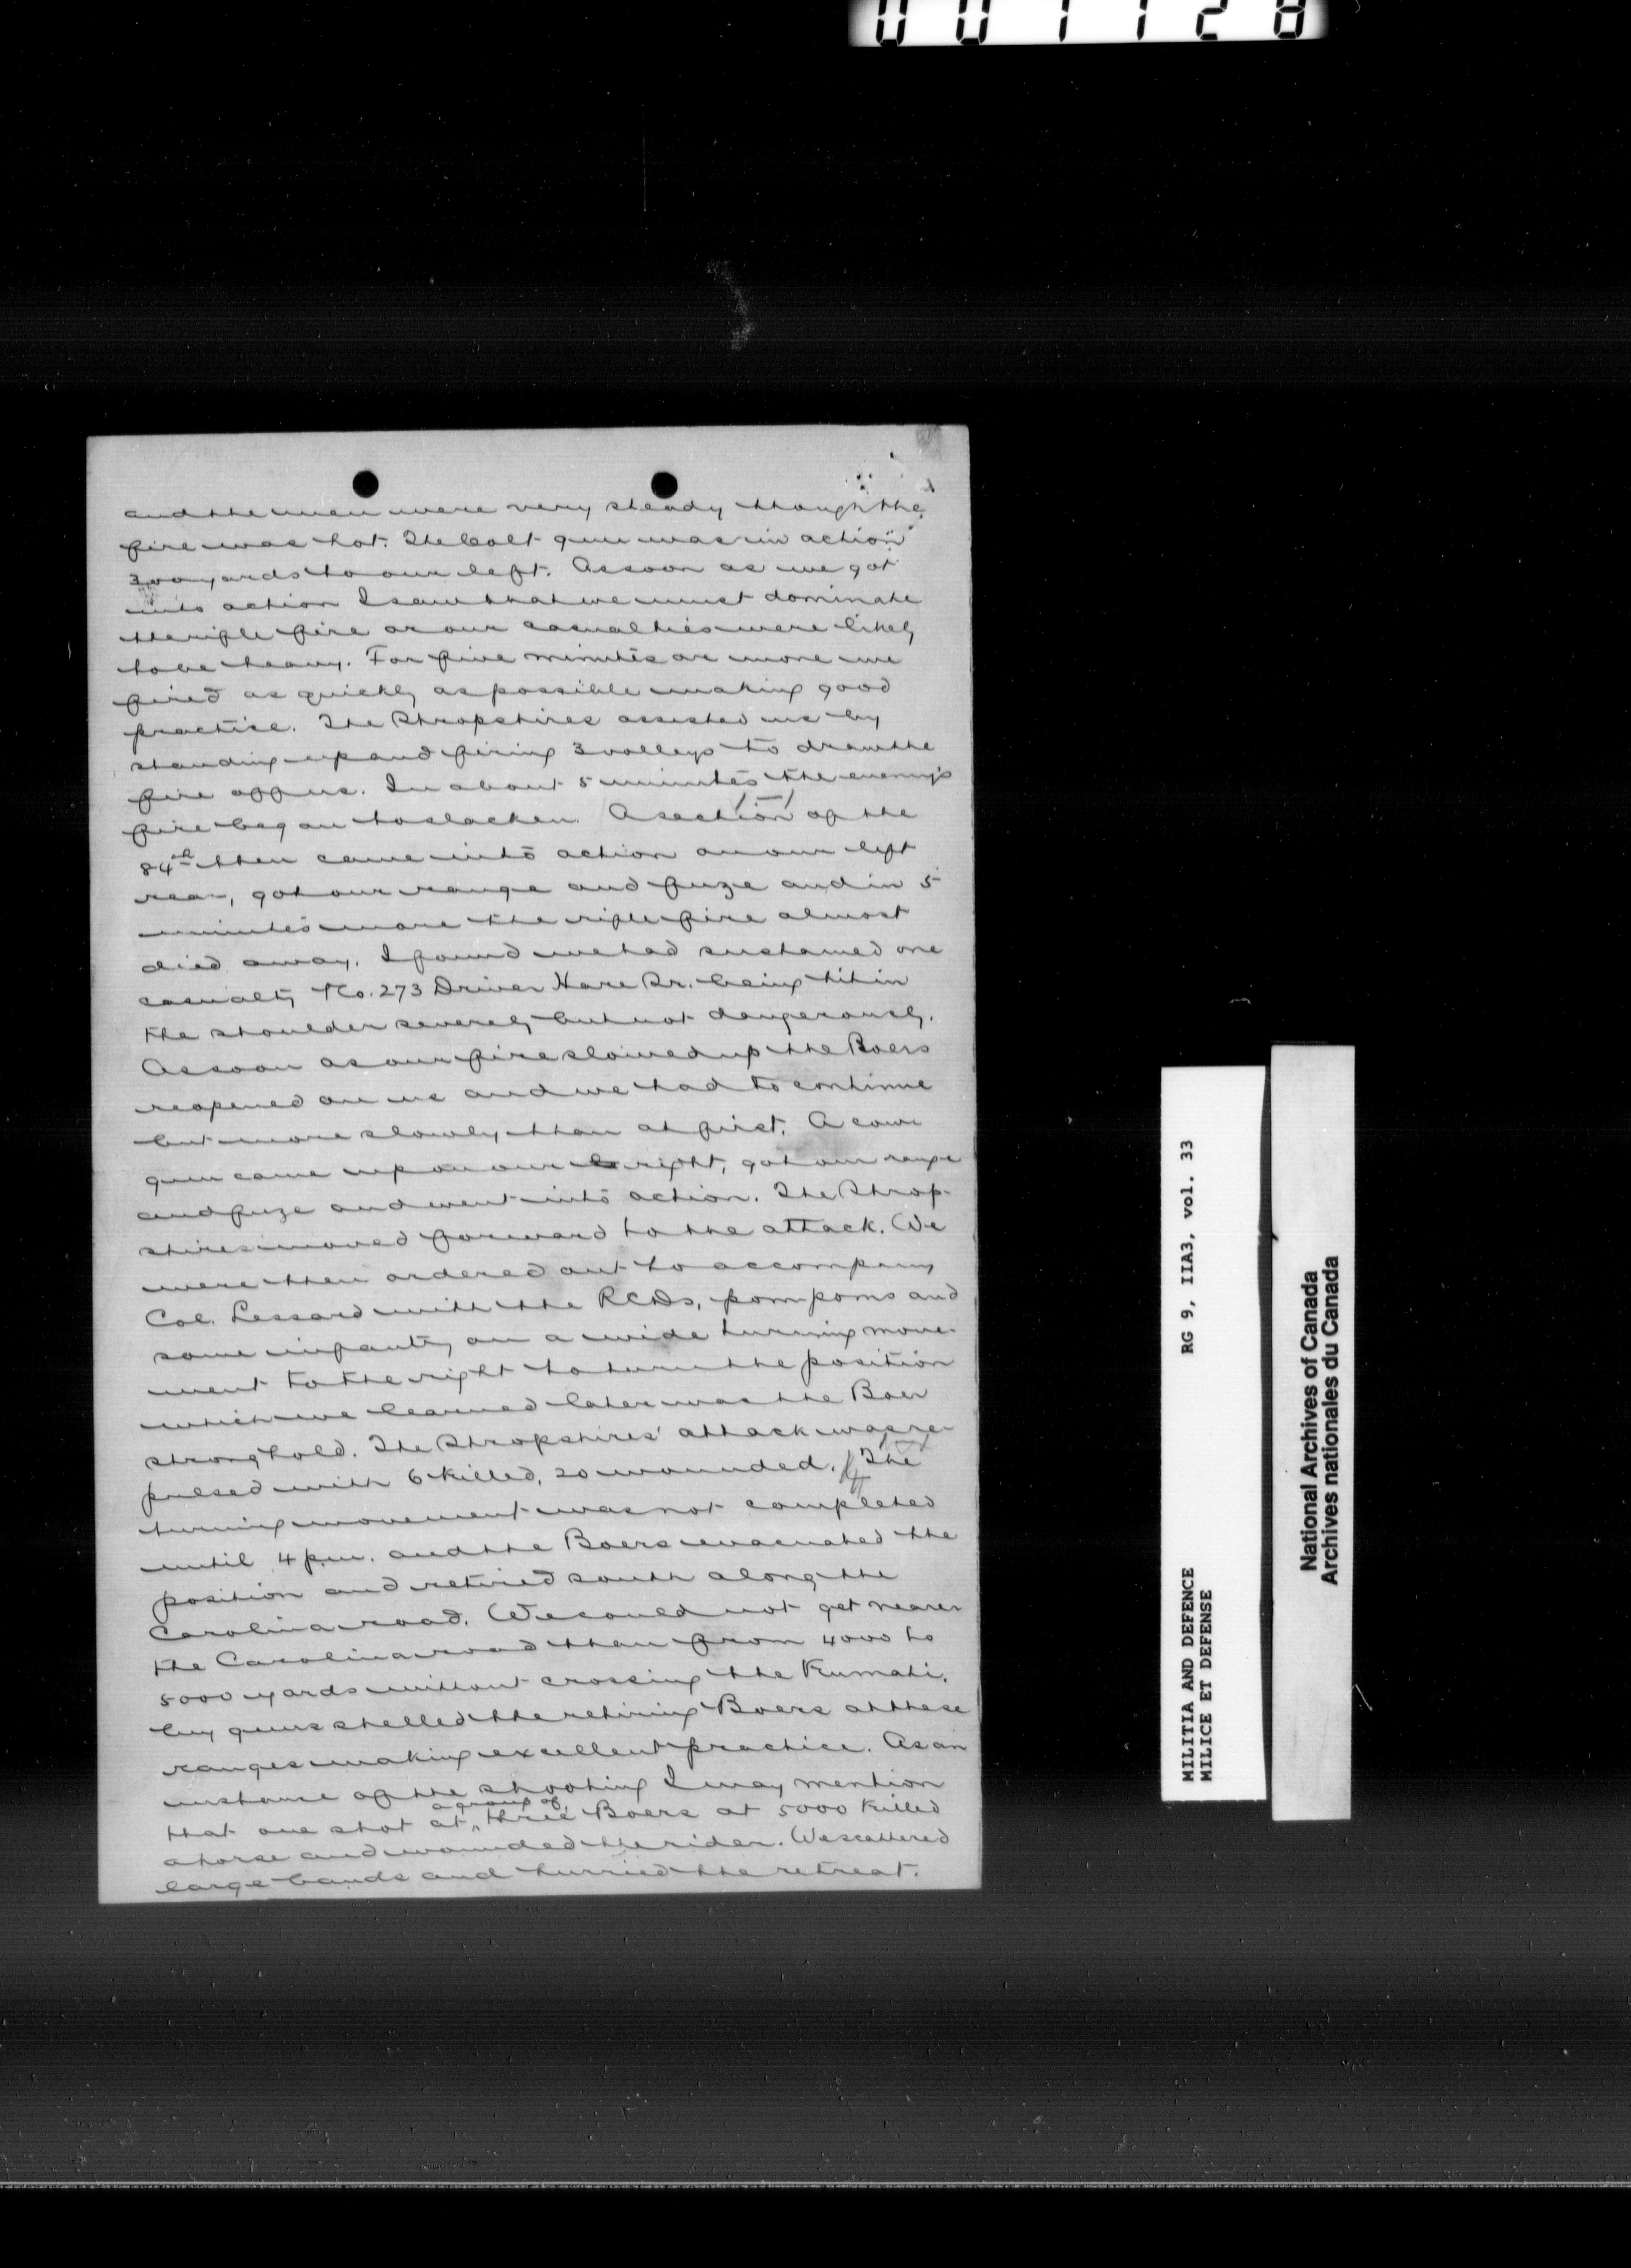 001128
and the men were very steady though the
fire was hot. The Colt gun was in action
300 yards to our left. As soon as we got
into action I saw that we must dominate
the rifle fire or our casualties were likely
to be heavy. For five minutes or more we
fired as quickly as possible making good
practise. The Shropshires assisted us by
standing up and firing 3 volleys to draw the
fire off us. In about 5 minutes the enemy's
fire began to slacken. A section of the
84th then came into action on our left
rear, got our range and fuze and in 5
minutes more the rifle fire almost
died away. I found we had sustained one
casualty No. 273 Driver Hare Dr. being hit in
the shoulder severely but not dangerously.
As soon as our fire slowed up the Boers
reopened on us and we had to continue
but more slowly than at first. A cow
gun came up on our right, got our range
and fuze and went into action. The Shrop-
shires moved forward to the attack. We
were then ordered out to accompany
Col. Lessard with the RCDs, pompoms and
some infantry on a wide turning move-
ment to the right to turn the position
which we learned later was the Boer
stronghold. The Shropshires' attack was re-
pulsed with 6 killed, 20 wounded. The
turning movement was not completed
until 4 p.m. and the Boers evacuated the
position and retired south along the
Carolina road. We could not get nearer
the Carolina road than from 4000 to
5000 yards without crossing the Kumati.
My guns shelled the retiring Boers at these
ranges making excellent practice. As an
instance of the shooting I may mention
that one shot at a group of three Boers at 5000 killed
a horse and wounded the rider. We scattered
large bands and hurried the retreat.
MILITIA AND DEFENCE RG 9, IIA3, vol. 33
MILICE ET DEFENSE
National Archives of Canada
Archives nationales du Canada